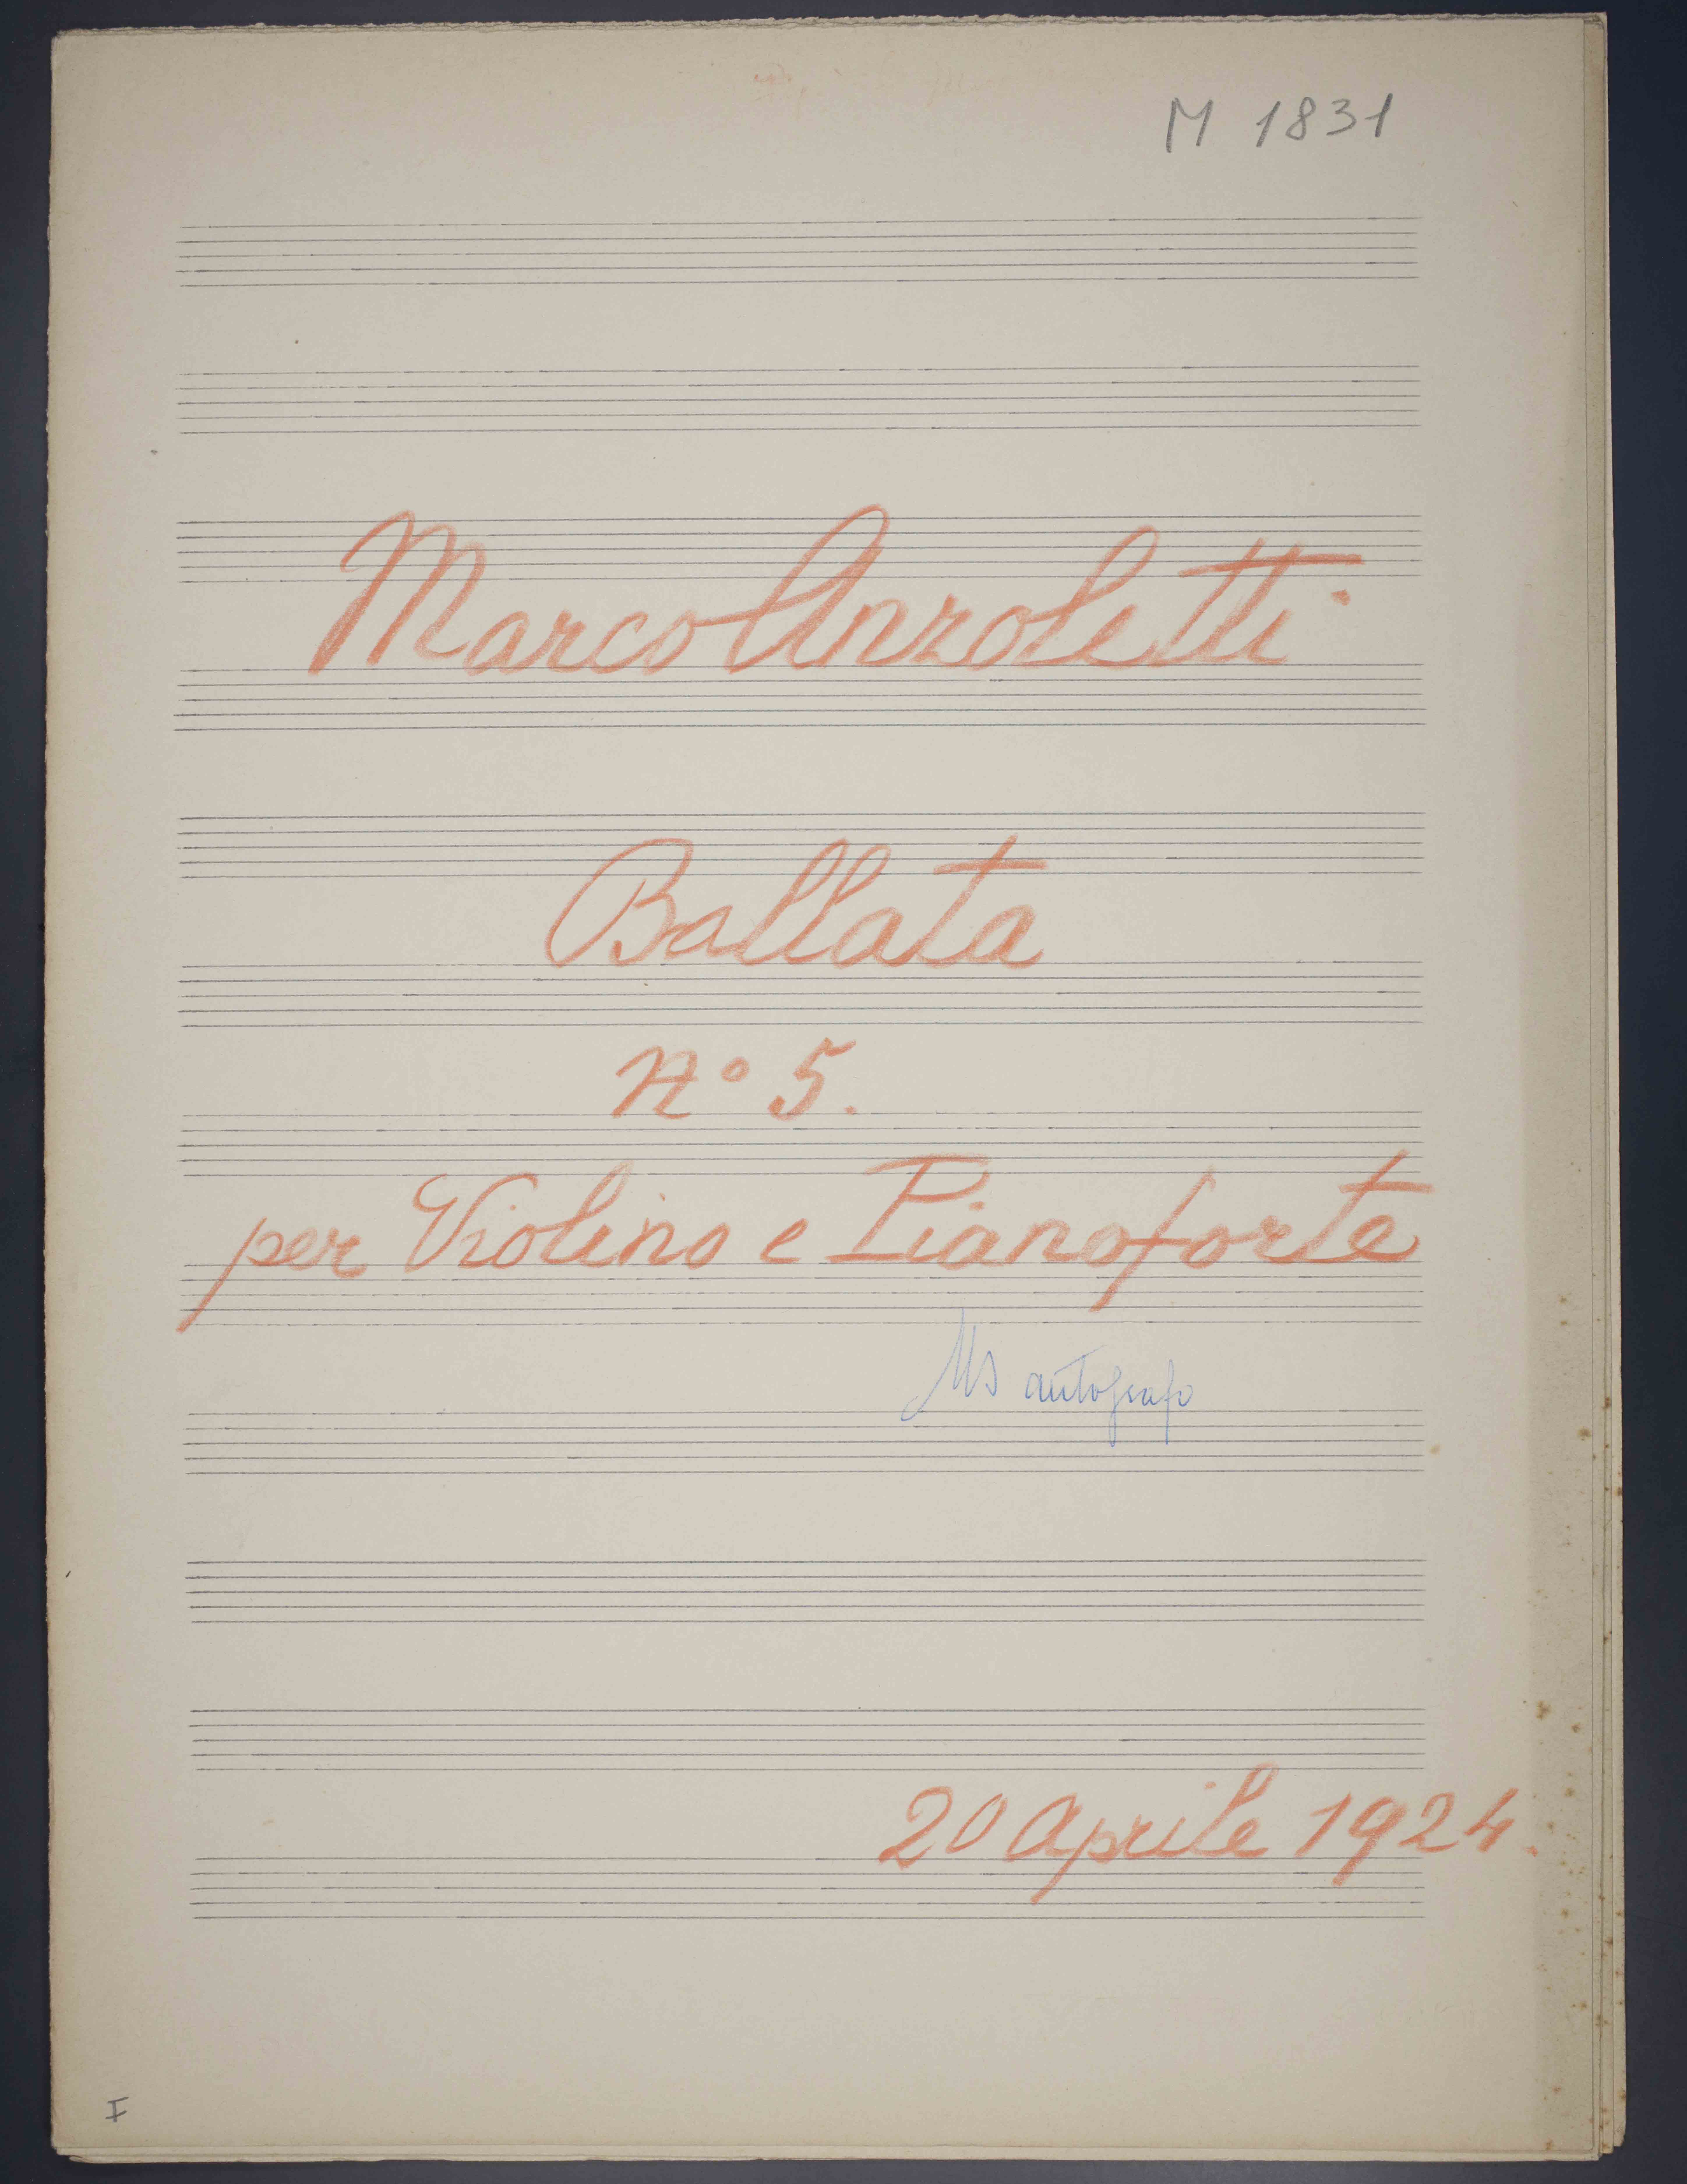 M 1831
Marco Anzoletti
Ballata
n° 5.
per Violino e Pianoforte
Ms autografo
20 Aprile 1924.
I